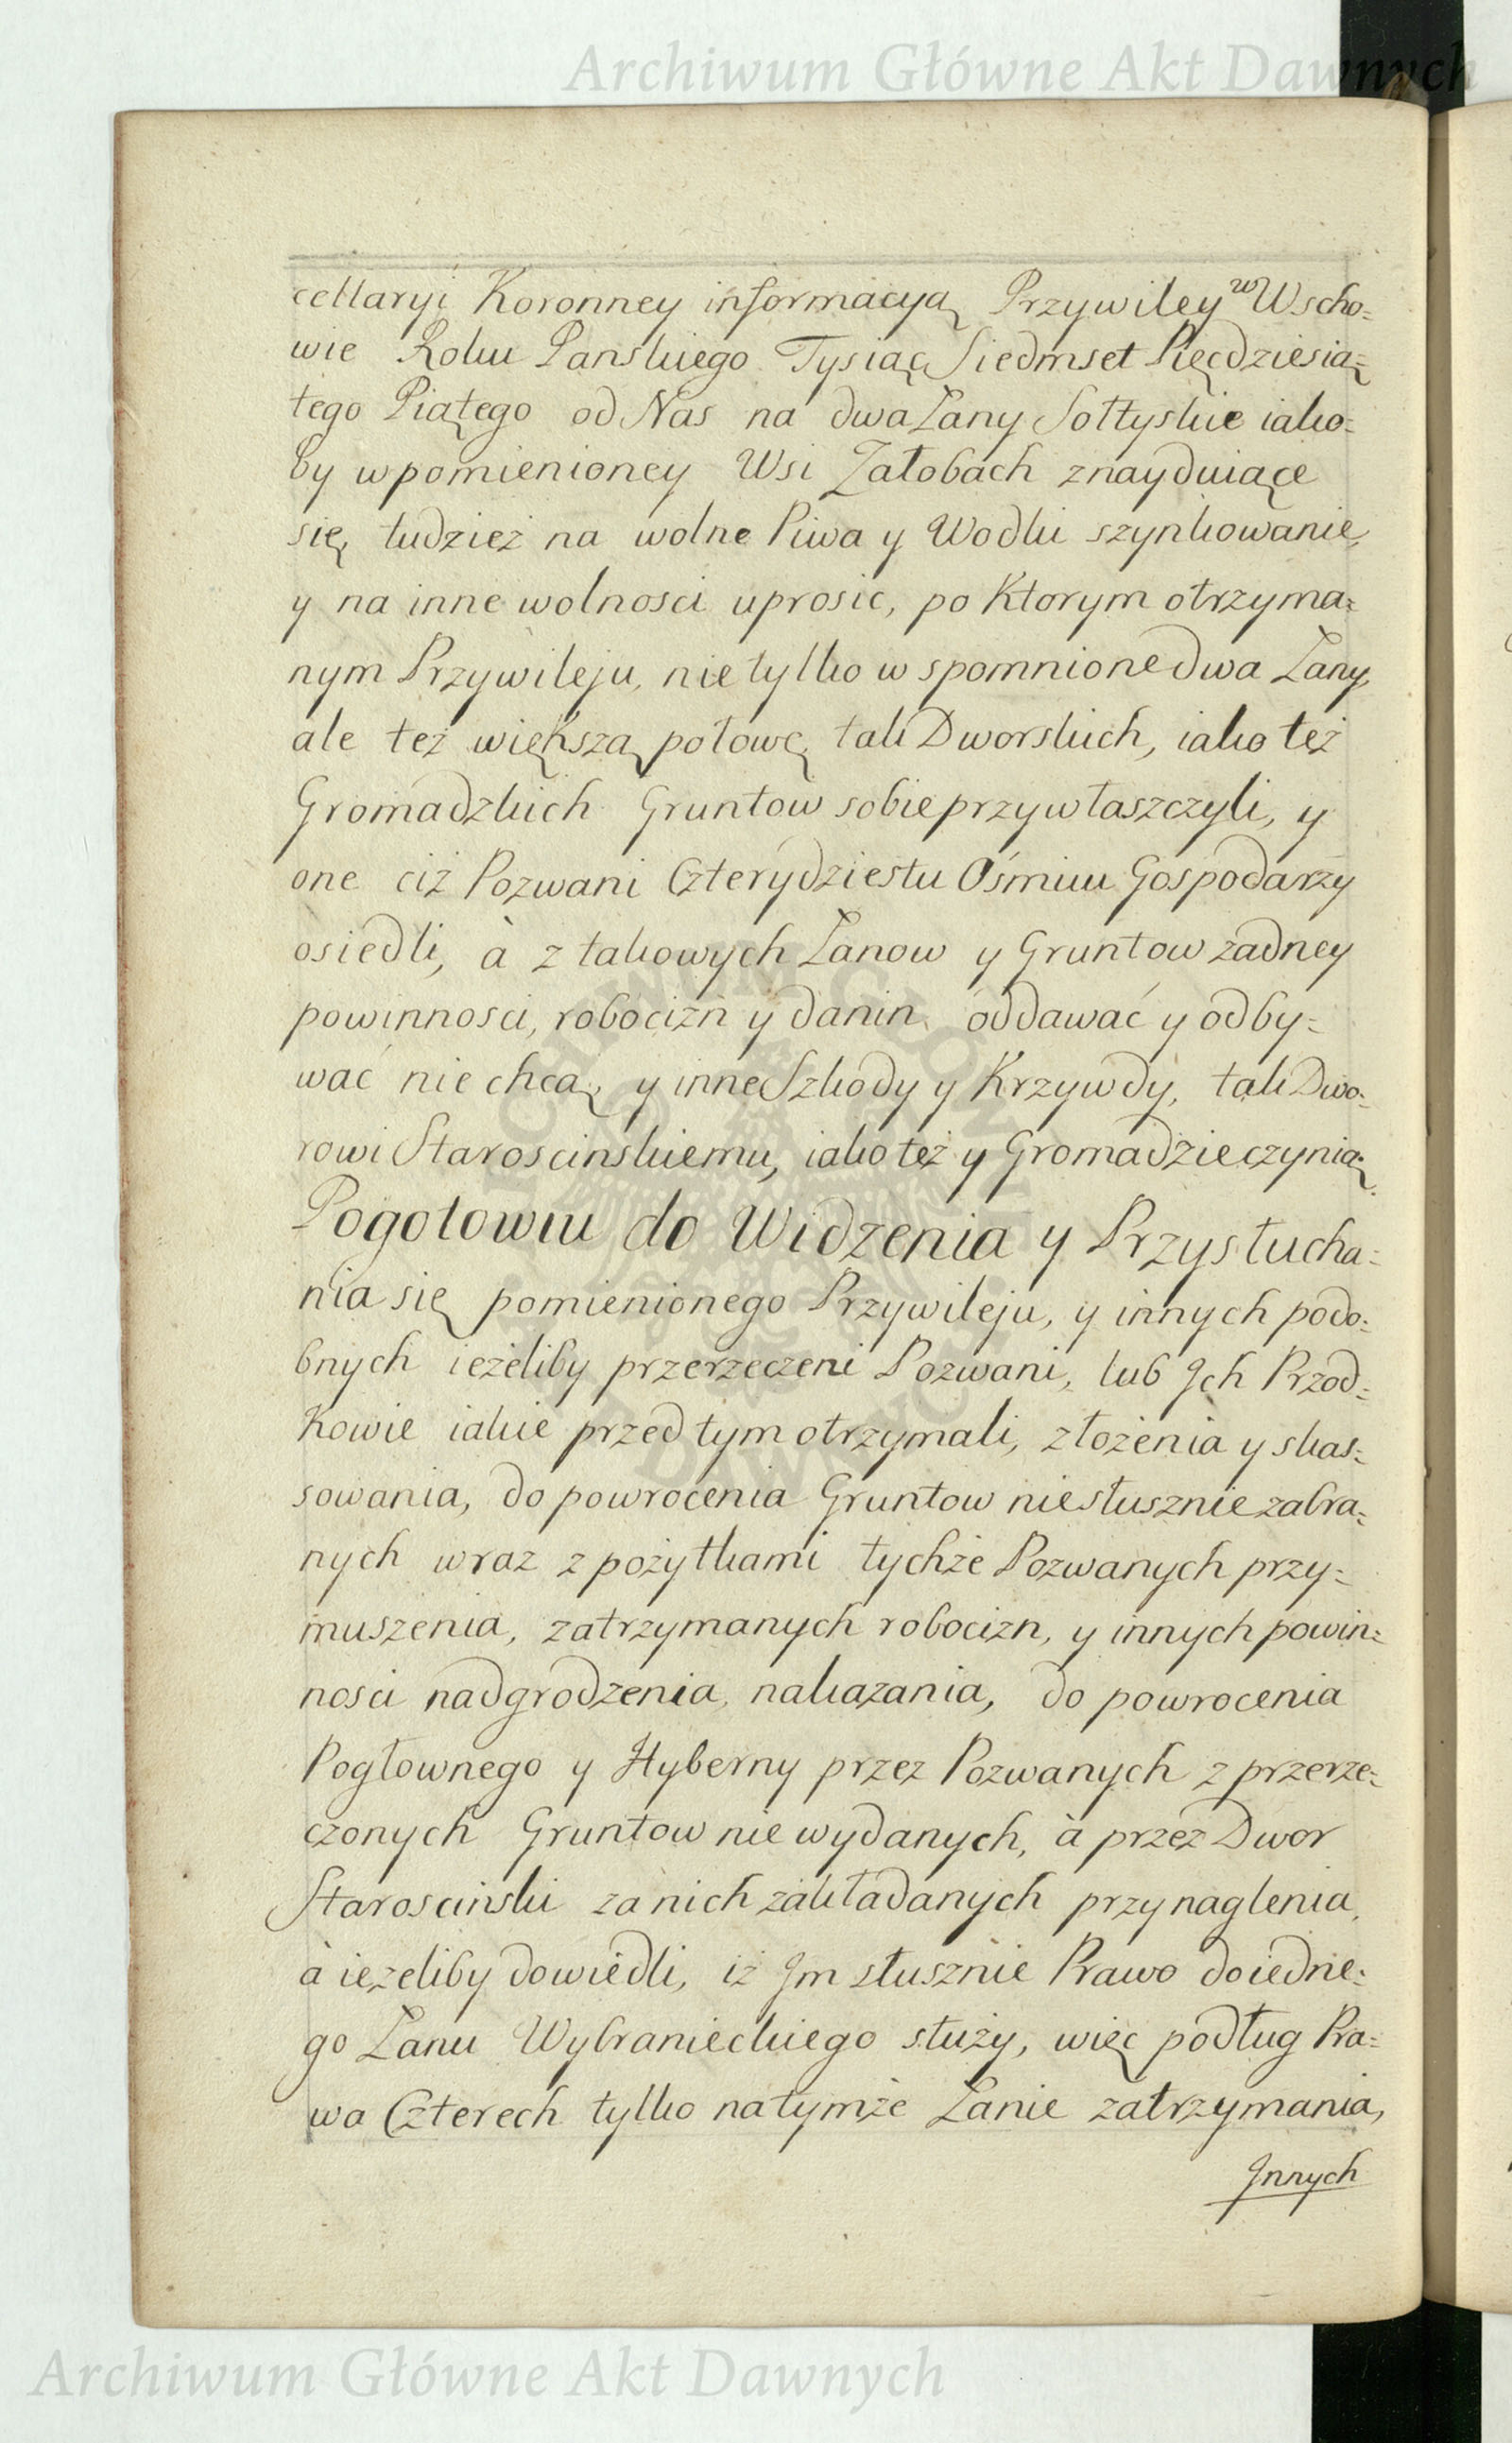 Archiwum Główne Akt Dawnych
cellaryi Koronney informacyą Przywiley w Wscho-
wie Roku Panskiego Tysiąc Siedmset Pięcdziesią-
tego Piątego od Nas na dwa Łany Sołtyskie iako-
by w pomienioney Wsi Załobach znayduiące
się, tudzież na wolne Piwa y Wodki szynkowanie,
y na inne wolnosci uprosic, po Ktorym otrzyma-
nym Przywileju, nie tylko wspomnione dwa Łany,
ale też większą połowę tak Dworskich, iako też
Gromadzkich Gruntow sobie przywłaszczyli, y
one ciż Pozwani Czterydziestu Ośmiu Gospodarzy
osiedli, à z takowych Łanow y Gruntow żadney
powinnosci, robocizn y danin oddawać y odby-
wać nie chcą, y inne Szkody y Krzywdy, tak Dwo-
rowi Staroscinskiemu, iako też y Gromadzie czynią.
Pogotowiu do Widzenia y Przysłucha-
nia się pomienionego Przywileju, y innych podo-
bnych ieżeliby przerzeczeni Pozwani, lub Ich Przod-
Kowie iakie przed tym otrzymali, złożenia y skas-
sowania, do powrocenia Gruntow niesłusznie zabra-
nych wraz z pożytkami tychże Pozwanych przy-
muszenia, zatrzymanych robocizn, y innych powin-
nosci nadgrodzenia, nakazania, do powrocenia
Pogłownego y Hyberny przez Pozwanych z przerze-
czonych Gruntow nie wydanych, à przez Dwor
Staroscinski za nich zakładanych przynaglenia,
à ieżeliby dowiedli, iż Im słusznie Prawo do iedne-
go Łanu Wybranieckiego służy, więc podług Pra-
wa Czterech tylko na tymże Łanie zatrzymania,
Innych
Archiwum Główne Akt Dawnych